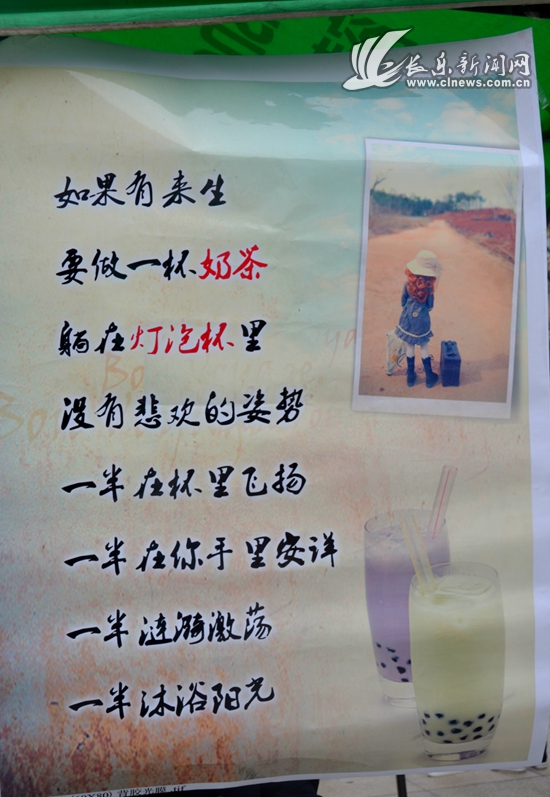 长乐新闻网
www.clnews.com.cn
如果有来生
要做一杯奶茶
躺在灯泡杯里
没有悲欢的姿势
一半在杯里飞扬
一半在你手里安详
一半涟漪激荡
一半沐浴阳光
Bo